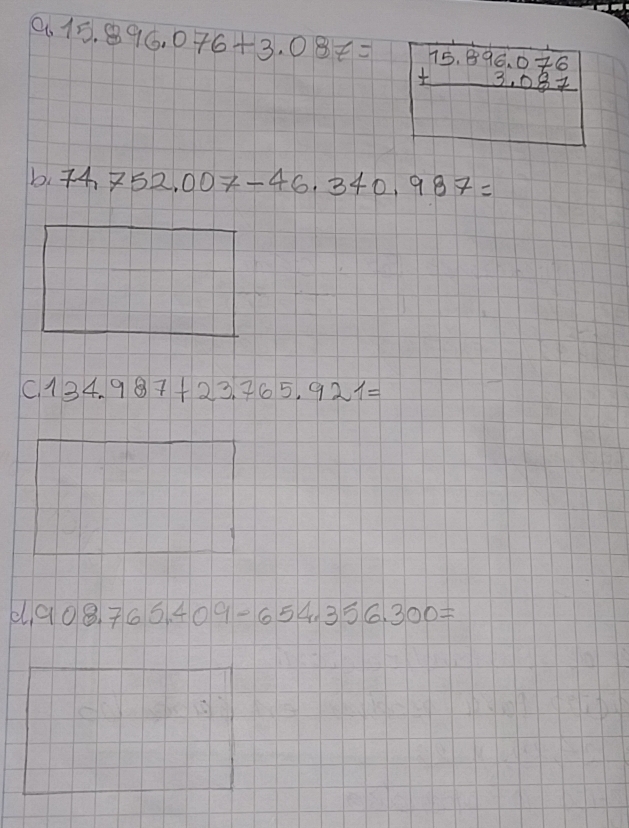 a. 15.896.076+3.087=
15.896.076
+ 3.087
b. 74.752.007-46.340.987=
c. 134.987+23.765.921=
d. 908.765.409-654.356.300=